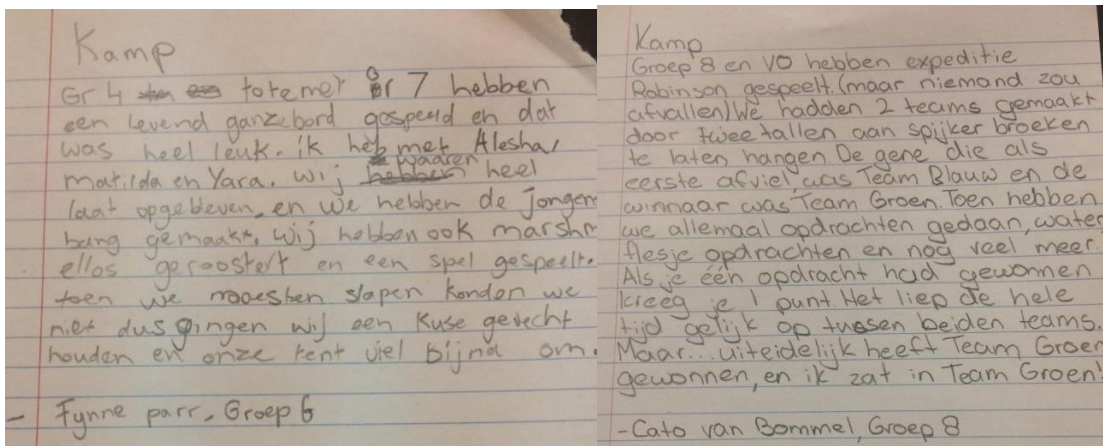 Kamp
Gr 4 totemet gr 7 hebben
een levend ganzebord gespeeld en dat
was heel leuk. ik heb met Alesha,
matilda en Yara. wij waaren heel
laat opgebleven, en we hebben de jongen
bang gemaakt. wij hebben ook marshm
ellos geroostert en een spel gespeelt.
toen we moesten slapen konden we
niet dus gingen wij een kuse gevecht
houden en onze tent viel bijna om.
- Fynne parr, Groep 6
Kamp
Groep 8 en VO hebben expeditie
Robinson gespeelt. (maar niemand zou
afvallen) We hadden 2 teams gemaakt
door twee tallen aan spijker broeken
te laten hangen. De gene die als
eerste afviel, was Team Blauw en de
winnaar was Team Groen. Toen hebben
we allemaal opdrachten gedaan, water
flesje opdrachten en nog veel meer.
Als je één opdracht had gewonnen
kreeg je 1 punt. Het liep de hele
tijd gelijk op tussen beiden teams.
Maar... uiteidelijk heeft Team Groen
gewonnen, en ik zat in Team Groen!
- Cato van Bommel, Groep 8